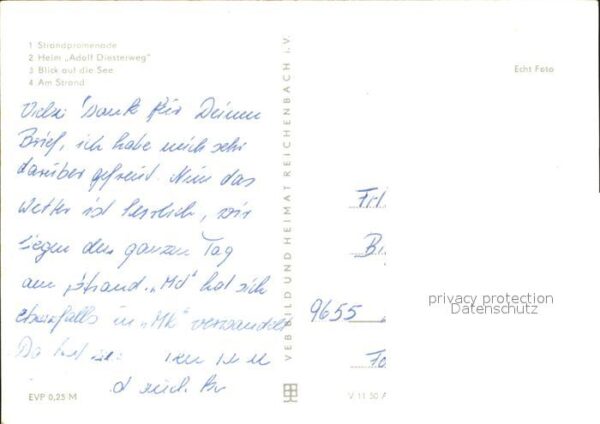 1 Strandpromenade
2 Heim „Adolf Diesterweg"
3 Blick auf die See
4 Am Strand
Dank für Deinen
Brief, ich habe mich sehr
darüber gefreut. Nun das
Wetter ist herrlich, wir
liegen den ganzen Tag
am Strand. „Md" hat sich
ebenfalls in „Mk" verwandelt
EVP 0,25 M
VEB BILD UND HEIMAT REICHENBACH i. V.
Echt Foto
Frl
9655
privacy protection
Datenschutz
V 11 50 A